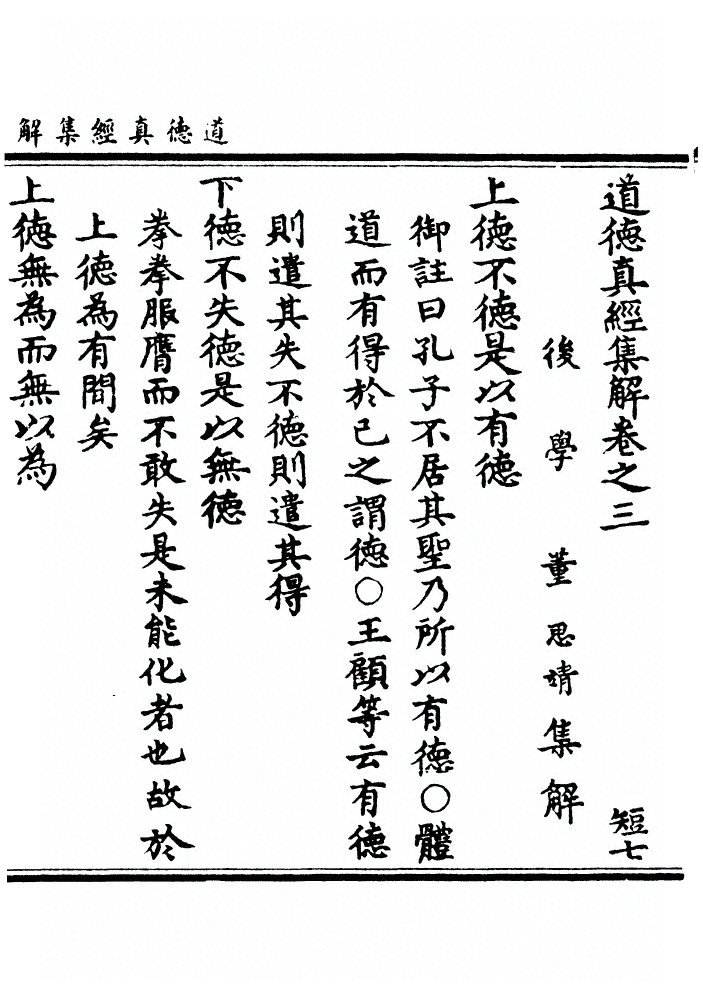 道德真經集解
道德真經集解卷之三 短七
後學 董思靖集解
上德不德是以有德
御註曰孔子不居其聖乃所以有德○體
道而有得於己之謂德○王顧等云有德
則遣其失不德則遣其得
下德不失德是以無德
拳拳服膺而不敢失是未能化者也故於
上德為有間矣
上德無為而無以為